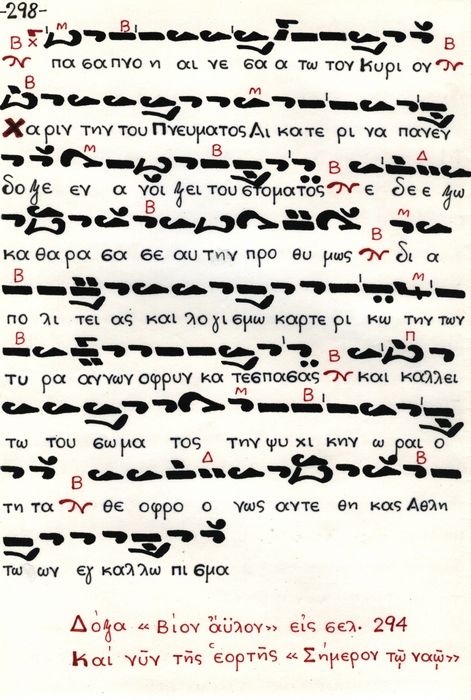 -298-
πα σα πνο η αι νε σα α τω τον Κυρι ον
Χαριν την του Πνευματος Αι κατε ρι να πανεν
δο ξε εν α νοι ξει του στοματος ε δε ε ξω
κα θα ρα σα σε αυ την προ θυ μως δι α
πο λι τει ας και λο γι σμω καρτε ρι κω την των
τυ ρα αννων οφρυν κα τεσπασας και καλλει
τω του σω μα τος την ψυ χι κην ω ραι ο
τη τα θε οφρο ο νως αντε θη κας Αθλη
τω ων εγ καλλω πι σμα
Δόξα « Βίον ἄϋλον» εἰς σελ. 294
Καί νῦν τῆς ἑορτῆς « Σήμερον τῷ ναῷ»